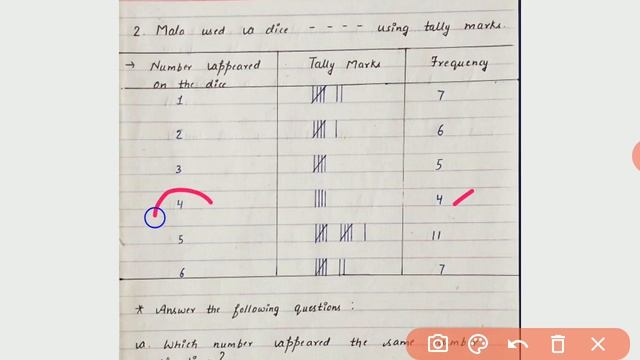 2. Mala used a dice - - - - using tally marks.
→ Number appeared on the dice Tally Marks Frequency
1 7
2 6
3 5
4 4
5 11
6 7
* Answer the following questions :
a. Which number appeared the same number